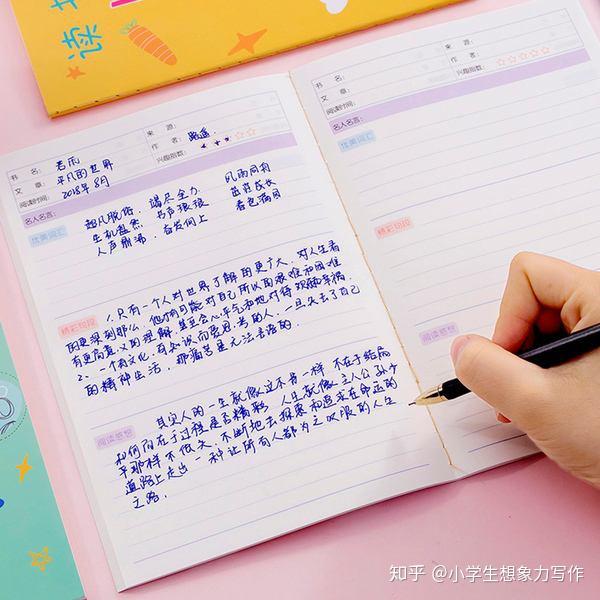 读
书 名：
文 章：平凡的世界
阅读时间：2018年8月
来 源：
作 者：路遥
兴趣指数：☆☆
名人名言：
优美词汇
超凡脱俗、竭尽全力 风雨同舟
生机盎然 书声琅琅 茁壮成长
人声鼎沸、奋发向上 春色满园
精彩句段
1.只有一个人对世界了解的更广大，对人生看
的更深刻那么，他才有可能对自己所认为的艰难和困难
有更高意义的理解，甚至会心平气和地对待 幸福.
2、一个有文化，有知识而爱思考的人，一旦失去了自己
的精神生活，那痛苦是无法言语的.
阅读感想
其实人的一生就像这本书一样 不在于结局
如何而在于过程是否精彩 人生就像主人公孙少
平那样不 不断地去探索和追求在命运的
道路上走出一种让所有人都为之叹服的人生
之路.
书 名：
文 章：
阅读时间：
来 源：
作 者：
兴趣指数：☆☆☆☆☆
名人名言：
优美词汇
精彩句段
阅读感想
知乎 @小学生想象力写作